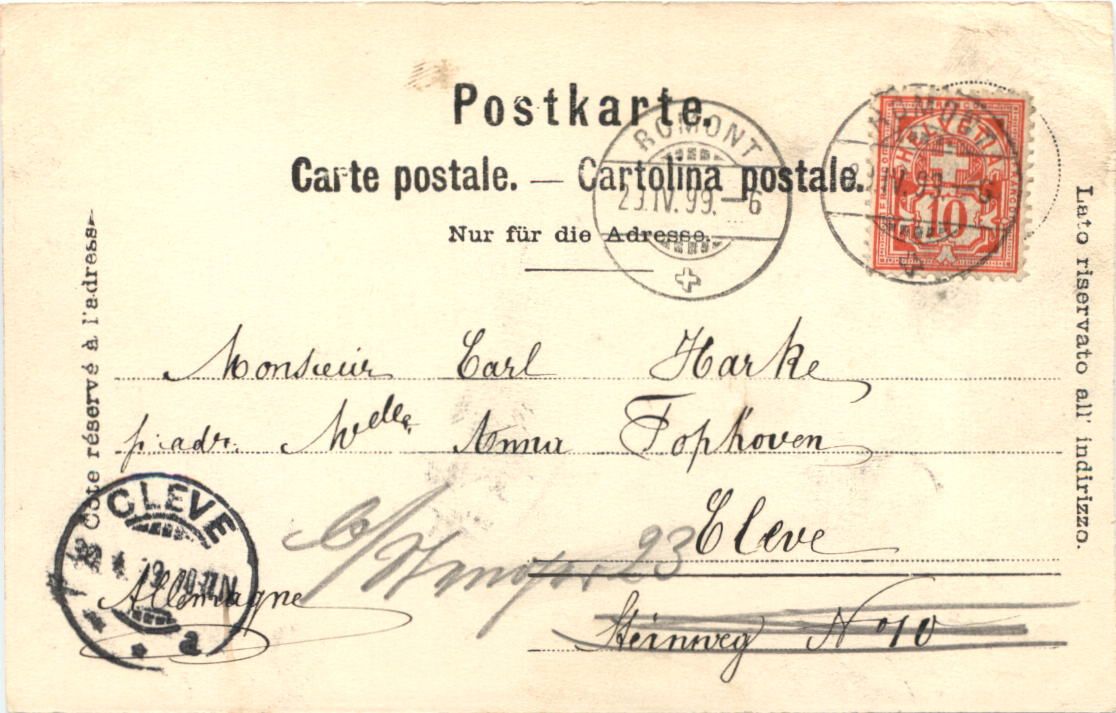 Postkarte.
Carte postale. — Cartolina postale.
Nur für die Adresse.
ROMONT
29.IV.99.–6
HELVETIA
10
Côté réservé à l'adresse
Lato riservato all' indirizzo.
Monsieur Carl Harke
p. adr. Melle Anna Fophoven
Cleve
Steinweg No 10
23
Allemagne
CLEVE
a